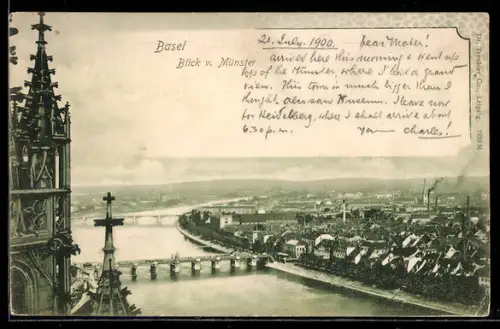 Basel
Blick v. Münster
21. July. 1900. Dear Mater!
arrived here this morning & went up
top of the Münster, where I had a grand
view. This town is much bigger than I
thought, also saw Museum. I leave now
for Heidelberg, where I shall arrive about
6.30 p.m. Your Charles!
Dr. Trenkler Co., Leipzig.